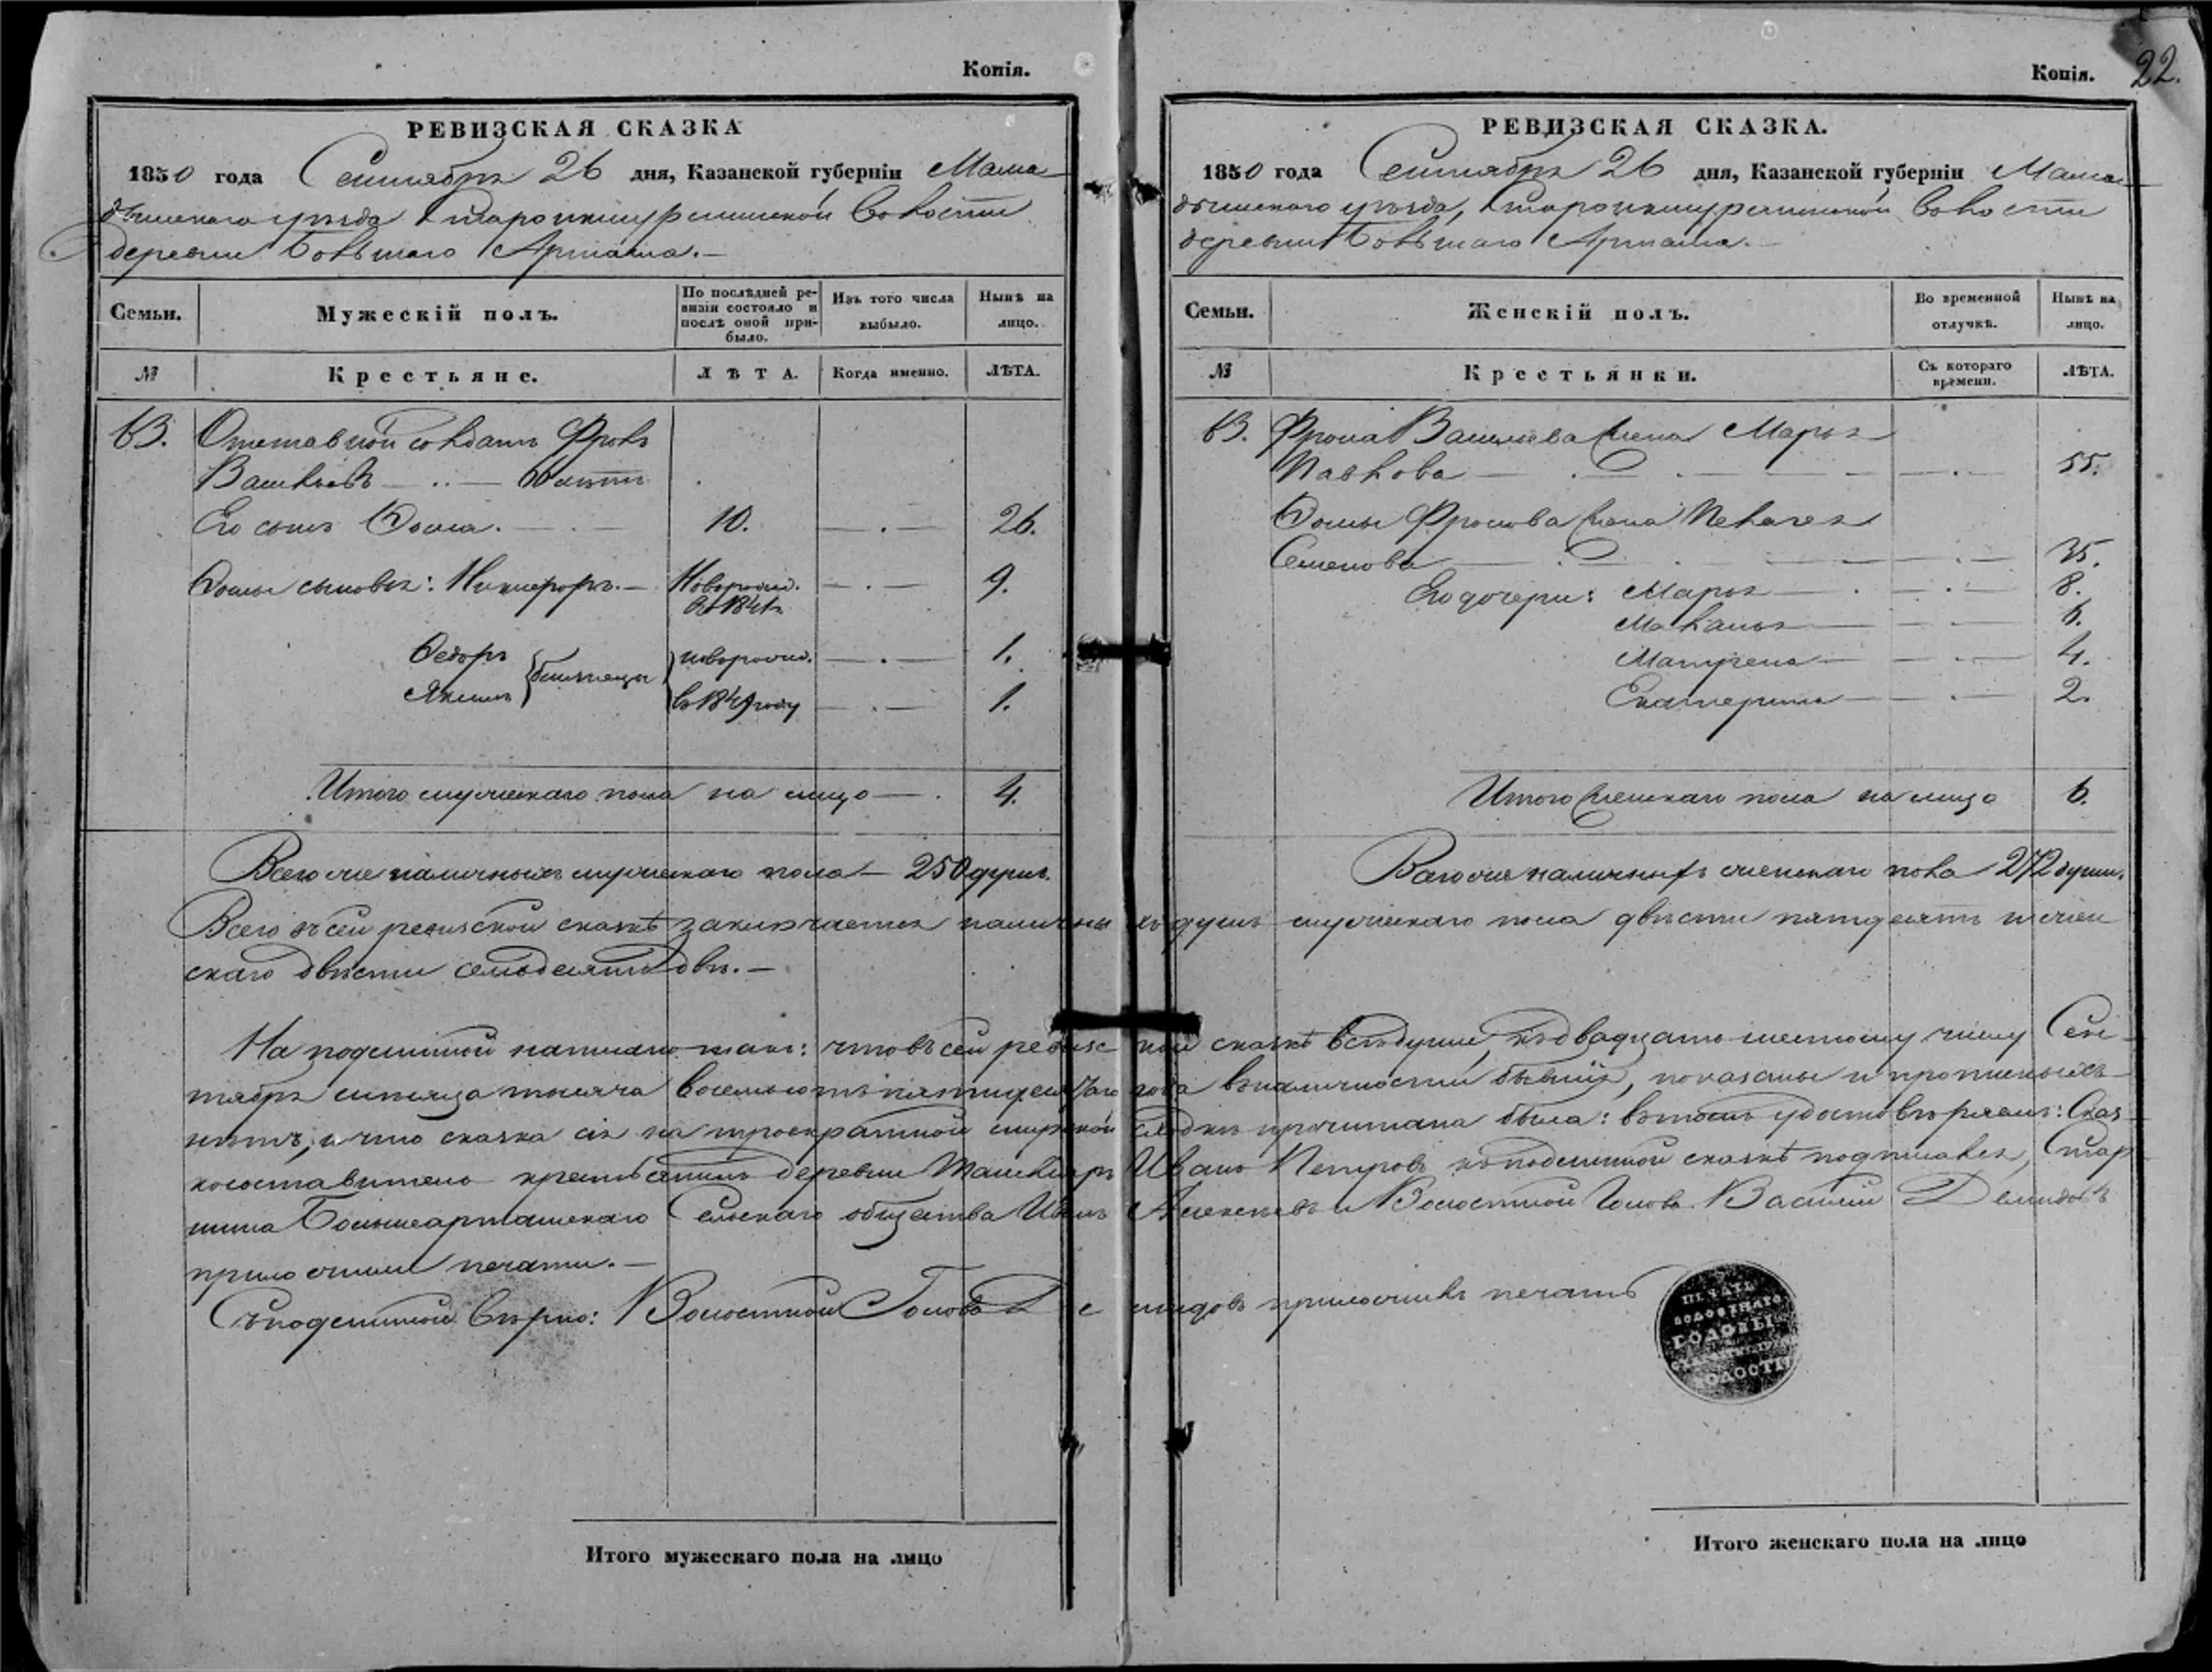 Копія.
РЕВИЗСКАЯ СКАЗКА
1850 года Сентября 26 дня, Казанской губерніи Мама-
дышскаго уѣзда Староикшурминской волости
деревни Большаго Арташа.—
Семьи. Мужескій полъ. По послѣдней ре-
визіи состояло и
послѣ оной при-
было. Изъ того числа
выбыло. Нынѣ на
лицо.
№ Крестьяне. ЛѢТА. Когда именно. ЛѢТА.
63. Отставной солдатъ Фролъ
Васильевъ
Его сынъ Фома. 10. 26.
Фомы сыновья: Никифоръ.— Новорожд. 9.
въ 1841
Федоръ новорожд. 1.
близнецы
Якимъ въ 1849 году 1.
Итого мужескаго пола на лицо 4.
Всего же наличныхъ мужескаго пола — 250 душъ.
Копія. 22.
РЕВИЗСКАЯ СКАЗКА.
1850 года Сентября 26 дня, Казанской губерніи Мама-
дышскаго уѣзда, Староикшурминской волости
деревни Большаго Арташа.—
Семьи. Женскій полъ. Во временной
отлучкѣ. Нынѣ на
лицо.
№ Крестьянки. Съ котораго
времени. ЛѢТА.
63. Фрола Васильева жена Марья
Павлова 55.
Фомы Фролова жена Пелагея
Семенова 35.
Его дочери: Марья 8.
Маланья 6.
Матрена 4.
Екатерина 2.
Итого женскаго пола на лицо 6.
Всего же наличныхъ женскаго пола 272 души.
Всего въ сей ревизской сказкѣ заключается наличныхъ душъ мужескаго пола двѣсти пятдесятъ и жен
скаго двѣсти семьдесятъ двѣ.—
На подлинной написано такъ: что въ сей ревизской сказкѣ всѣ души, къ двадцать шестому числу Сен-
тября мѣсяца тысяча восемьсотъ пятидесятаго года въ наличности бывшія, показаны и прописныхъ
нѣтъ, и что сказка сія на троекратной мирской сходкѣ прочитана была: въ томъ удостовѣряемъ: Сказ-
косоставитель крестьянинъ деревни Иванъ Петровъ къ подлинной сказкѣ подписался, Стар-
шина Большеарташскаго Сельскаго общества Иванъ Алексѣевъ и Волостной Голова Василій Демидовъ
приложили печати.—
Съ подлинной вѣрно: Волостной Голова Демидовъ приложилъ печать
ПЕЧАТЬ
ВОЛОСТНАГО
ГОЛОВЫ
ВОЛОСТИ
Итого мужескаго пола на лицо
Итого женскаго пола на лицо